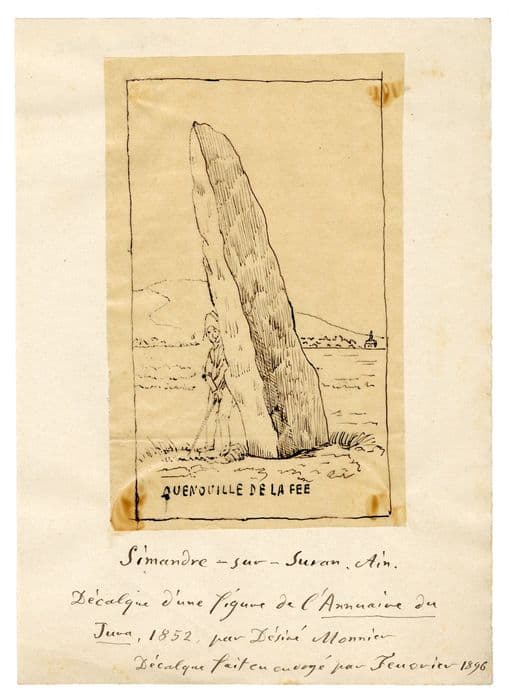 QUENOUILLE DE LA FEE
Simandre-sur-Suran. Ain.
Décalque d'une figure de l'Annuaire du
Jura, 1852. par Désiré Monnier
Décalque fait et envoyé par Feuvrier 1896